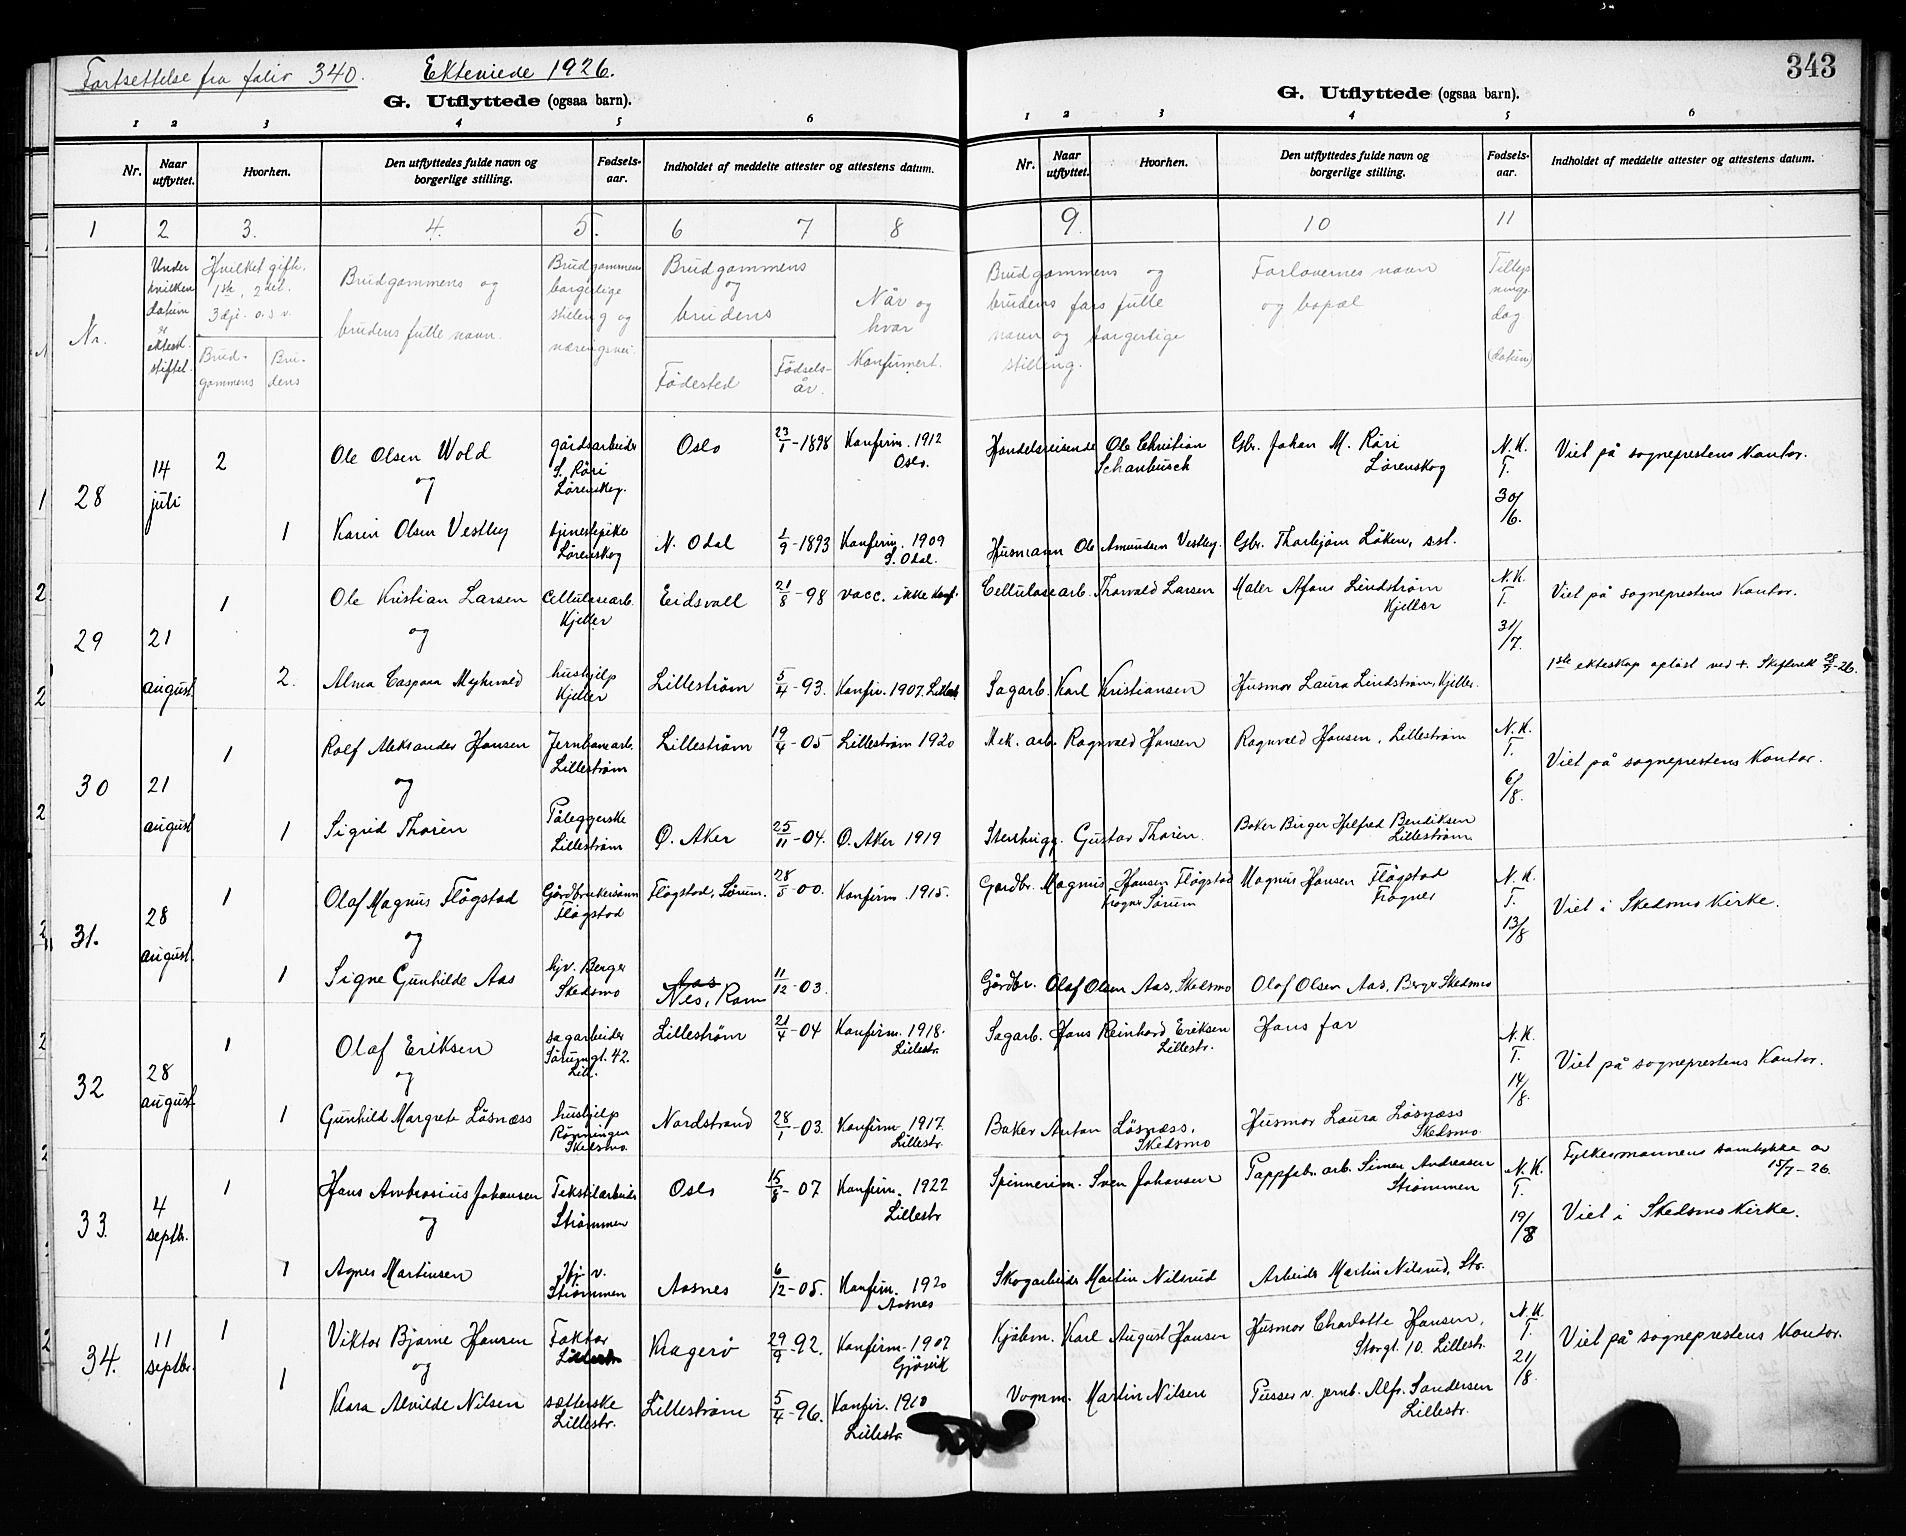 Fortsettelse fra folio 340. Ekteviede 1926.
343
G. Utflyttede (ogsaa barn).
G. Utflyttede (ogsaa barn).
1 2 3 4 5 6
1 2 3 4 5 6
Nr. Naar utflyttet. Hvorhen. Den utflyttedes fulde navn og borgerlige stilling. Fødsels-aar. Indholdet af meddelte attester og attestens datum.
Nr. Naar utflyttet. Hvorhen. Den utflyttedes fulde navn og borgerlige stilling. Fødsels-aar. Indholdet af meddelte attester og attestens datum.
1 2 3. 4. 5. 6 7 8 9. 10 11
Nr.
Under hvilken datum er ektesk. stiftet.
Hvilket gifte. 1ste, 2det. 3dje. o.s.v.
Brud-gommens
Bru-dens
Brudgommens og
brudens fulle navn.
Brudgommens borgerlige stilling og næringsvei.
Brudgommens
og
brudens
Fødested
Fødsels-år.
Når og hvor
Konfirmert.
Brudgommens og brudens fars fulle navn og borgerlige stilling.
Forlovernes navn og bopæl
dag
(datum)
28
14 juli
2
Ole Olsen Wold
gårdsarbeider S. Räri Lörenskog.
Oslo
23/1-1898
Konfirm. 1912 Oslo.
Handelsreisende Ole Christian
Gbr. Johan M. Räri Lørenskog
N.K. T. 30/6.
Viet på sogneprestens Kontor.
og
1
Karin Olsen Vestby
tjenestepike Lörenskog
N. Odal
1/9-1893
Konfirm. 1909 S. Odal.
Husmann Ole Amundsen Vestby.
Gbr. Thorbjörn Löken, s.st.
29
21 august
1
Ole Kristian Larsen
Cellulosearb. Kjeller
Eidsvoll
21/8-98
vacc. ikke Konf.
Cellulosearb. Thorvald Larsen
Maler Afons Lindström Kjeller
N.K. T. 31/7.
Viet på sogneprestens Kontor.
og
2.
Alma Caspara Myhrvold
hushjelp Kjeller
Lilleström
5/4-93.
Konfir. 1907.
Sagarb. Karl Kristiansen
Husmor Laura Lindström, Kjeller.
1ste ekteskap opløst ved +.
30
21 august
1
Rolf Aleksander Hansen
Jernbanearb. Lilleström
Lilleström
19/4-05
Lilleström 1920
Mek. arb. Ragnvald Hansen
Ragnvald Hansen, Lilleström
N.K. T. 6/8.
Viet på sogneprestens Kontor.
og
1
Sigrid Thorèn
Påleggerske Lilleström
Ö. Aker
25/11-04.
Ö. Aker 1919
Stenhugg. Gustav Thorèn.
Baker Birger Hilfred Bendiksen Lilleström
31.
28 august.
1
Olaf Magnus Flögstad
Gårdbrukersönn Flögstad
Flögstad, Sörum.
28/5-00.
Konfirm. 1915.
Gardbr. Magnus Hansen Flögstad Frogner Sörum
Magnus Hansen Flögstad Frogner
N.K. T. 13/8
Viet i Skedsmo Kirke.
og
1
Signe Gunhilde Aas
hjv. Berger Skedsmo
Aas
Nes, Rom
11/12-03.
Gårdbr. Olaf Olsen Aas, Skedsmo
Olaf Olsen Aas, Berger Skedsmo
32
28 august
1
Olaf Eriksen
sagarbeider Sörumgt. 42. Lill.
Lilleström
21/4-04
Konfirm. 1918. Lillestr.
Sagarb. Hans Reinhard Eriksen Lillestr.
Hans far
N.K. T. 14/8.
Viet på sogneprestens Kontor.
og
1
Gunhild Margrete Lösnæss
hushjelp Rönningen Skedsmo.
Nordstrand
28/1-03.
Konfirm. 1917. Lillestr.
Baker Anton Lösnæss, Skedsmo
Husmor Laura Lösnæss Skedsmo
33.
4 septb.
1
Hans Ambrosius Johansen
Tekstilarbeider Strömmen
Oslo
15/8-07
Konfirm. 1922 Lillestr
Spinnerim. Sven Johansen
Pappfabr. arb. Simen Andreasen Strömmen
N.K. T. 19/8
Fylkesmannens samtykke av 15/7-26.
Viet i Skedsmo Kirke.
og
1
Agnes Martinsen
Hj. v. Strömmen
Aasnes
6/12-05.
Konfirm. 1920 Aasnes
Skogarbeider Martin Nilsrud
Arbeider Martin Nilsrud, Str.
34.
11 septbr.
1
Viktor Bjarne Hansen
Faktor
Kragerö
29/9-92.
Konfirm. 1907 Gjövik
Kjöbm. Karl August Hansen
Husmor Charlotte Hansen, Storgt. 10. Lillestr.
N.K. T. 21/8.
Viet på sogneprestens Kontor.
og
1
Klara Alvilde Nilsen
sætterske Lillestr.
Lilleström
5/4-96.
Konfir. 1910 Lillestr.
Vognm. Martin Nilsen
Pusser v. jernb. Alfr. Sandersen Lillestr.